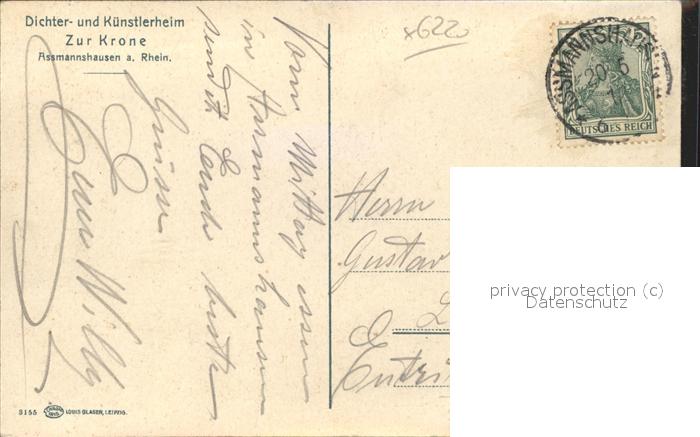 Dichter- und Künstlerheim
Zur Krone
Assmannshausen a. Rhein.
x6220
Vom Mittag essen
in Assmannshausen
sendet Euch beste
Grüsse
Euer Willy
ASSMANNSHAUSEN
20 5
DEUTSCHES REICH
Herrn
Gustav
L
Eutri
privacy protection (c)
Datenschutz
3155
LOUIS GLASER, LEIPZIG.